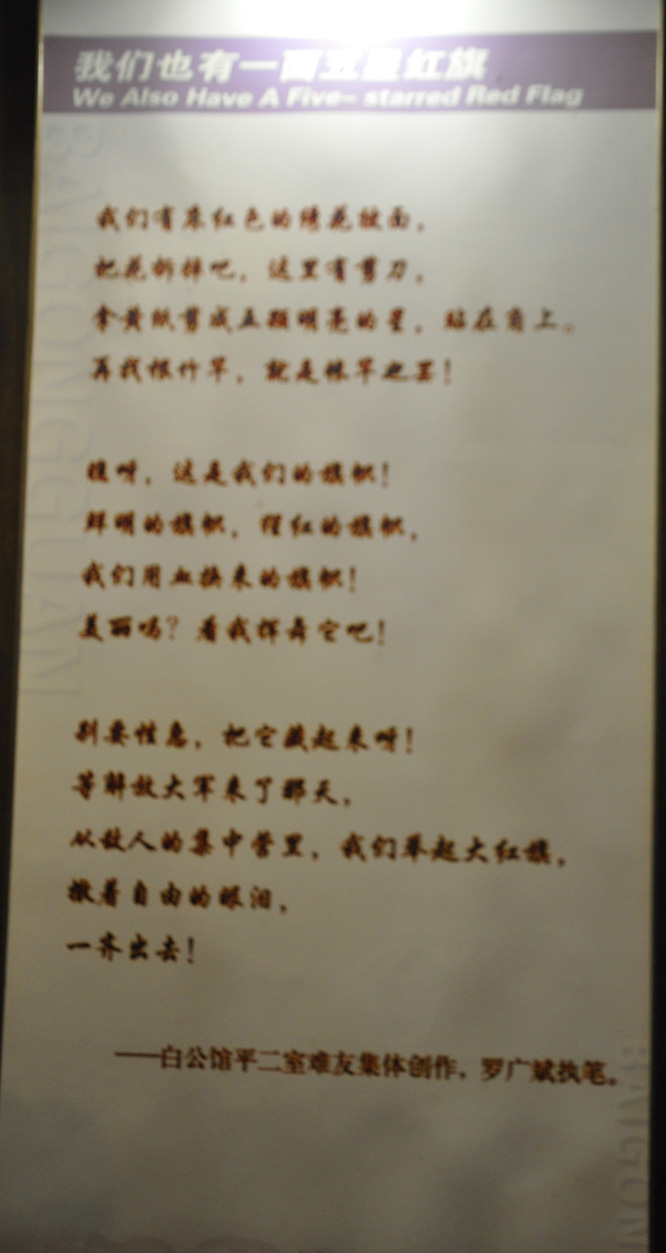 我们也有一面五星红旗
We Also Have A Five- starred Red Flag
BAIGONGGUAN
我们有床红色的绣花被面，
把花拆掉吧，这里有剪刀，
拿黄纸剪成五颗明亮的星，贴在角上。
再找根竹竿，就是帐竿也罢！
瞧呀，这是我们的旗帜！
鲜明的旗帜，猩红的旗帜，
我们用血换来的旗帜！
美丽吗？看我挥舞它吧！
别要性急，把它藏起来呀！
等解放大军来了那天，
从敌人的集中营里，我们举起大红旗，
撒着自由的眼泪，
一齐出去！
——白公馆平二室难友集体创作，罗广斌执笔。
BAIGON